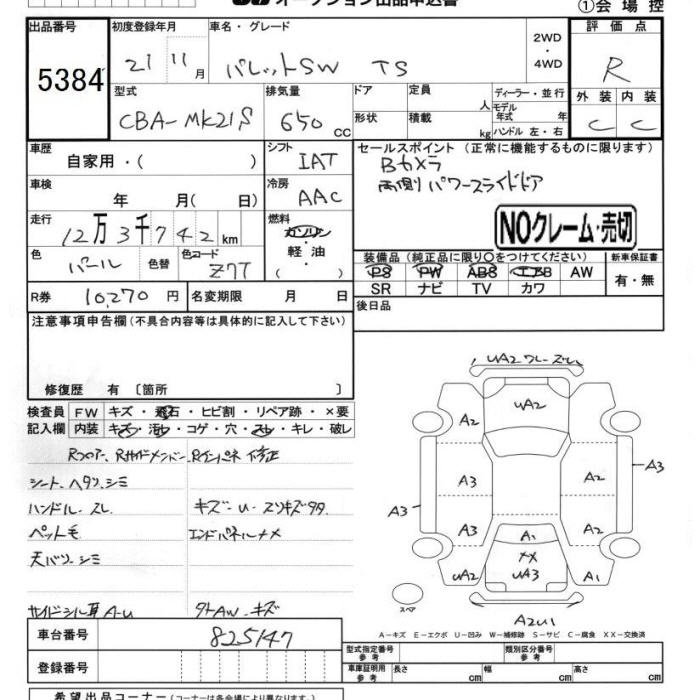 オークション出品申込書
①会場控
出品番号
5384
初度登録年月
21 11月
車名・グレード
パレットSW TS
2WD
・
4WD
評価点
R
外装 内装
C C
型式
CBA-MK21S
排気量
650 cc
ドア
形状
定員
人
積載
kg
ディーラー・並行
モデル年式 年
ハンドル 左・右
車歴
自家用・( )
シフト
IAT
セールスポイント (正常に機能するものに限ります)
Bカメラ
両側パワースライドドア
NOクレーム・売切
車検
年 月( 日)
冷房
AAC
走行
12万3千742km
燃料
ガソリン
軽油
( )
色
パール
色替
色コード
Z7T
装備品 (純正品に限り〇をつけてください)
PS PW ABS エアB AW
SR ナビ TV カワ
新車保証書
有・無
R券 10,270円
名変期限 月 日
後日品
注意事項申告欄(不具合内容等は具体的に記入して下さい)
修復歴 有 〔箇所 〕
検査員 FW キズ・飛石・ヒビ割・リペア跡・×要
記入欄 内装 キズ・汚れ・コゲ・穴・スレ・キレ・破レ
Rフロアー、Rサイドメンバー、Rインパネ 修正
シート、ヘタリ、シミ
ハンドル スレ
キズ-U スリキズタタ
ペット毛
エンドパネルナメ
天バリ、シミ
サイドシル耳 A-U
タトAW-キズ
UA2 ワレ・ズレ
UA2
A2
A3
A2
A3
A3
A3
A2
A1
XX
UA3
UA2
A1
スペア
A2U1
A-キズ E-エクボ U-凹み W-補修跡 S-サビ C-腐食 XX-交換済
車台番号
825147
登録番号
型式指定番号
参考
類別区分番号
参考
車庫証明用
参考
長さ cm
幅 cm
高さ cm
希望出品コーナー(コーナーは各会場により異なります。)